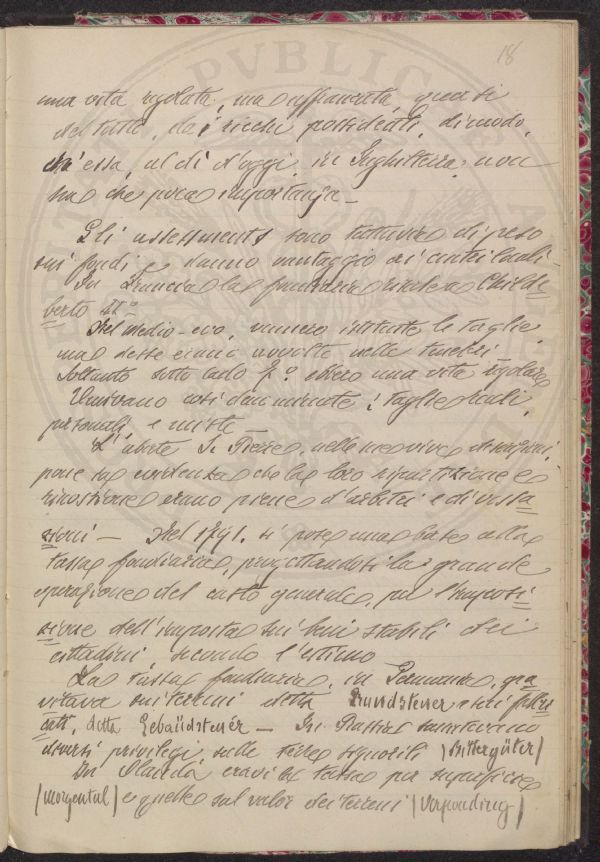 18
una vita regolata, ma affrancata quasi
del tutto, dai ricchi possidenti, di modo,
ch'essa, al dì d'oggi, in Inghilterra, non
ha che poca importanza_
Gli assessments sono tuttavia di peso
sui fondi e danno vantaggio ai
In Francia la fondiaria risale a Childe=
berto II°.
Nel medio-evo, vennero istituite le taglie,
ma desse erano avvolte nelle tenebri_
Soltanto sotto Carlo ebbero una vita regolare
Venivano così denominate: taglie reali,
personali e miste_
L'abate S. Pierre, nelle sue vive descrizioni,
pone in evidenza che la loro ripartizione e
riscossione erano piene d'arbitri e di vessa=
zioni_ Nel 1791. si pose una base alla
tassa fondiaria, progettandosi la grande
operazione del catasto generale, per l'imposi=
zione dell'imposta sui beni stabili dei
cittadini secondo l'estimo
La tassa fondiaria, in Germania, gra=
vitava sui terreni detta Grundsteuer e sui fabbri=
cati, detta Gebaüdsteuer_ In Prussia sussistevano
diversi privilegi sulle terre signorili (Rittergüter)
In Olanda eravi la tassa per superficie
(morgental) e quella sul valor dei terreni (Verponding)